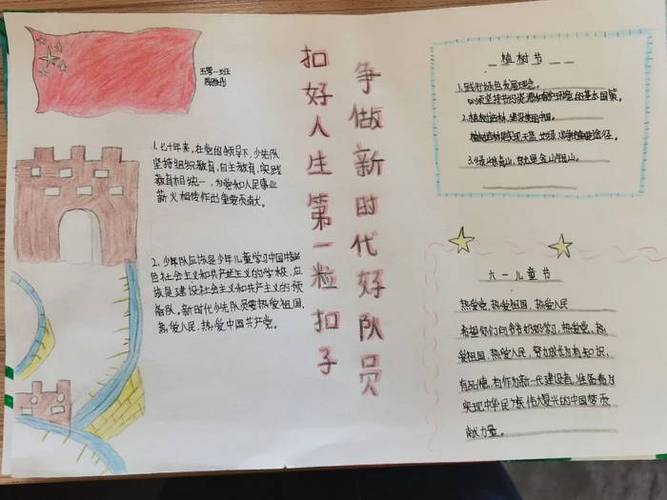 扣好人生第一粒扣子
争做新时代好队员
1.七十年来，在党的领导下，少先队
坚持组织教育，自主教育，实践
教育相统一，为党和人民事业
薪火相传作出重要贡献。
2.少年队应该是少年儿童学习中国特
色社会主义和共产主义的学校，应
该是建设社会主义和共产主义的预
备队。新时代少先队员要热爱祖国，
热爱人民，热爱中国共产党。
植树节
1.践行绿色发展理念，
必须坚持节约资源和保护环境的基本国策。
2.植树造林，
3.绿水青山，就是金山银山。
六一儿童节
热爱党，热爱祖国，热爱人民
希望你们向爷爷奶奶学习，热爱党，热
爱祖国，热爱人民，努力成长为有知识，
有品德，有作为新一代建设者，准备着为
实现中华民族伟大复兴的中国梦贡
献力量。